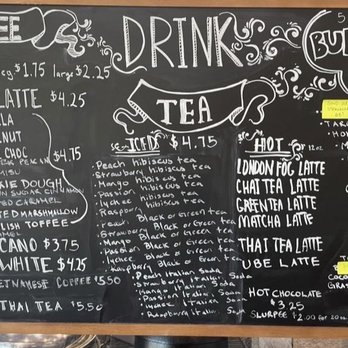 EE
DRINK
BU
reg $1.75 large $2.25
LATTE $4.25
TEA
LA
NUT
CHOC
$4.75
KIE DOUGH
SUGAR CINNAMON
ED CARAMEL
TEDMARSHMALLOW
LISH TOFFEE
CANO $3.75
WHITE $4.25
ETNAMESE COFFEE $5.50
THAI TEA $5.50
ICED $4.75
Peach hibiscus tea
Strawberry hibiscus tea
Mango hibiscus tea
Passion hibiscus tea
Lychee hibiscus tea
Raspberry hibiscus tea
Peach Black or Green tea
Strawberry Black or Green tea
Mango Black or Green tea
Passion Black or Green tea
Lychee Black or Green tea
Raspberry Black or Green tea
Peach Italian Soda
Strawberry Italian Soda
Mango Italian Soda
Passion Italian Soda
Lychee Italian Soda
Raspberry Italian Soda
HOT
12oz.
LONDON FOG LATTE
CHAI TEA LATTE
GREEN TEA LATTE
MATCHA LATTE
THAI TEA LATTE
UBE LATTE
HOT CHOCOLATE
$3.25
SLURPEE $2.00 FOR 20oz
TAR
HO
M
COCO
GRAS